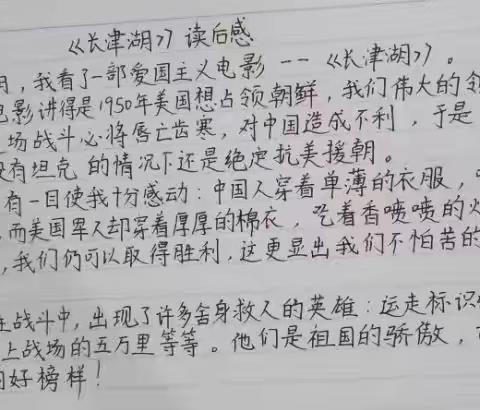 《长津湖》读后感
，我看了一部爱国主义电影 -- 《长津湖》。
电影讲得是1950年美国想占领朝鲜，我们伟大的领
场战斗必将唇亡齿寒，对中国造成不利，于是
没有坦克的情况下还是绝定抗美援朝。
有一目使我十分感动：中国人穿着单薄的衣服，
，而美国军人却穿着厚厚的棉衣，吃着香喷喷的火
，我们仍可以取得胜利，这更显出我们不怕苦的
在战斗中，出现了许多舍身救人的英雄：运走标识
上战场的五万里等等。他们是祖国的骄傲，
的好榜样！